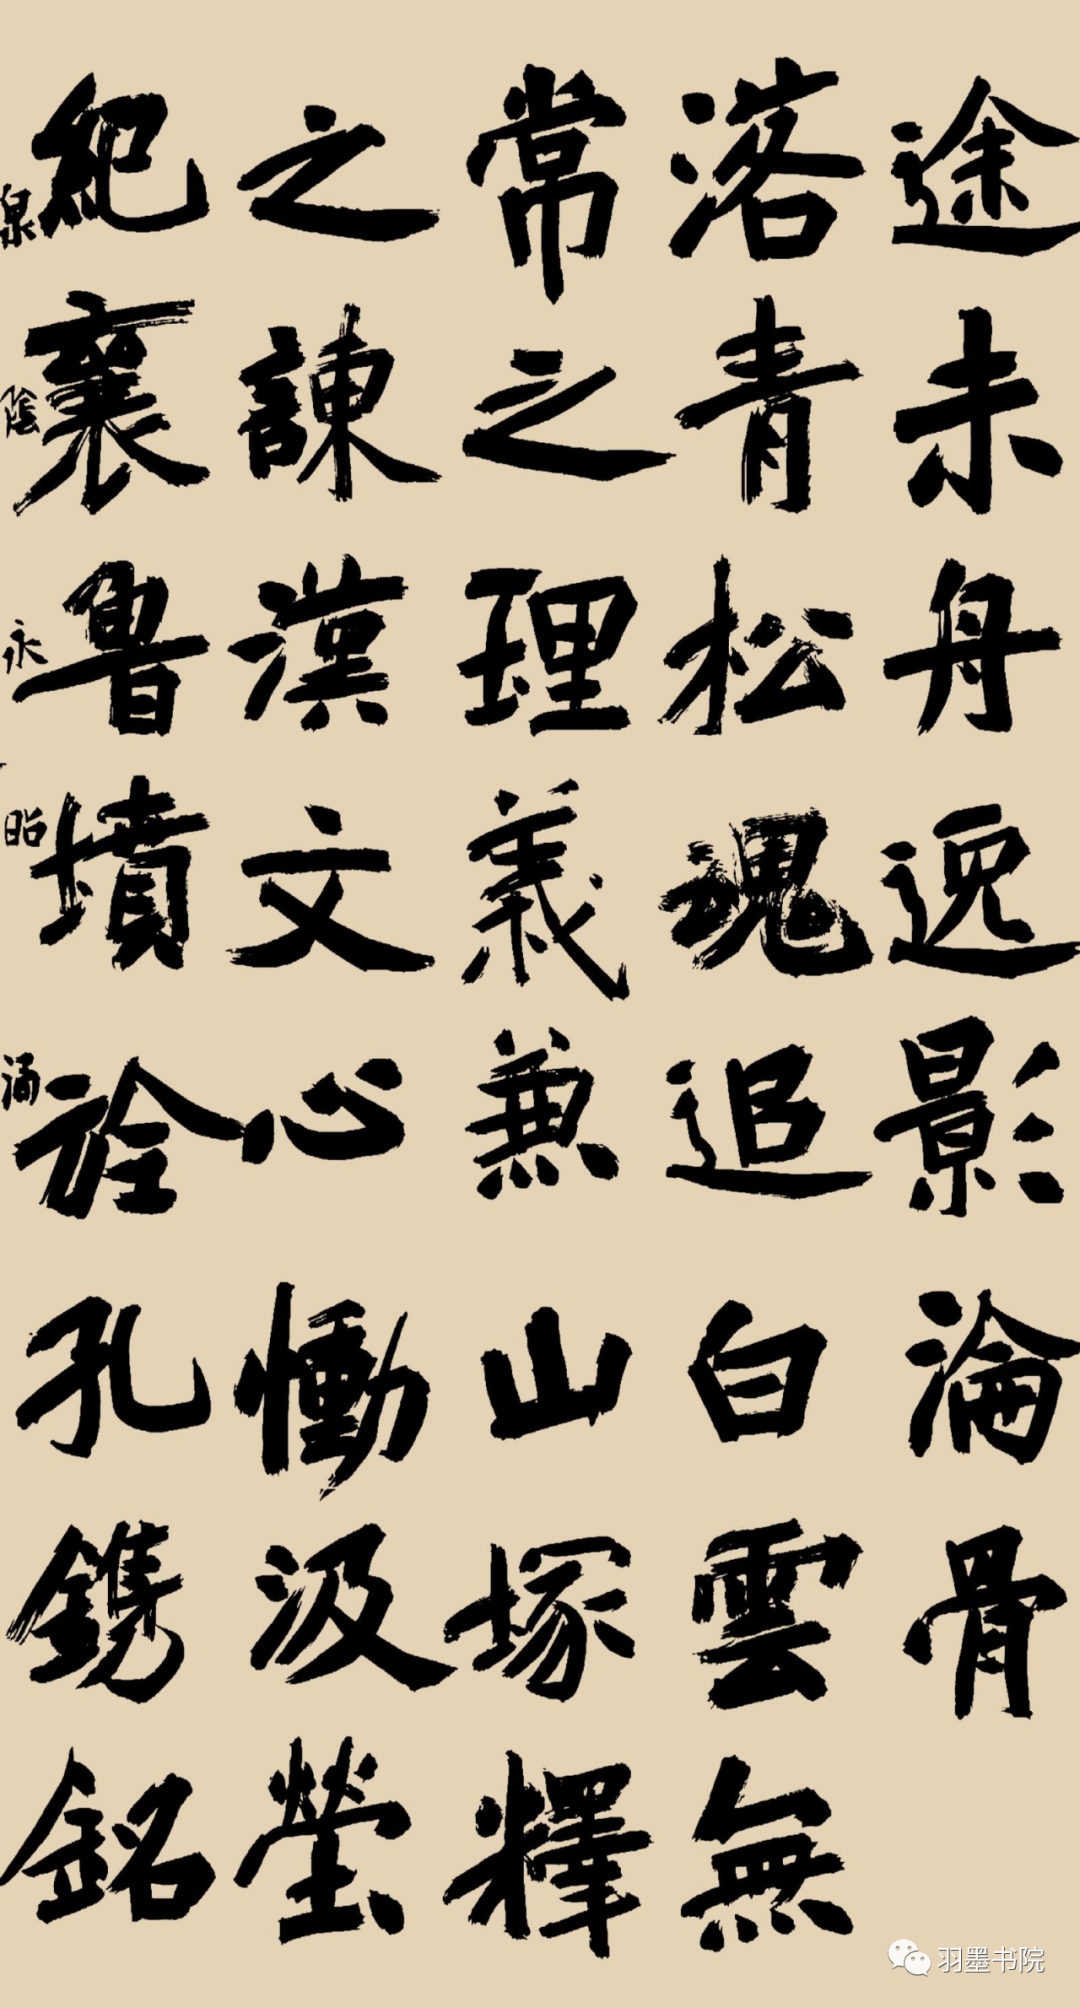 途未舟逸影淪骨
落青松魂追白雲無
常之理義兼山塚釋
之諫漢文心慟汲塋
紀襄魯墳於孔鐫銘
泉陰永昭涵
羽墨书院